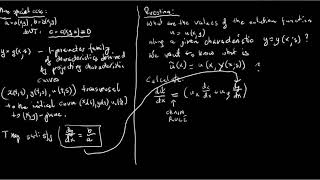 a = a(x,y), b = b(x,y)
c = c(x,y) = 0
y = y(x,s) - 1-parameter family
of characteristics defined
by projecting characteristic
curves
to the initial curve
to (x,y)-plane.
They satisfy dy/dx = b/a
Question:
What are the values of the solution function
u = u(x,y)
along a given characteristic y = y(x,s)?
We want to know what is
ũ(x) = u(x, y(x,s)) ?
Calculate
dũ/dx = (u_x dx/dx + u_y dy/dx)
CHAIN
RULE